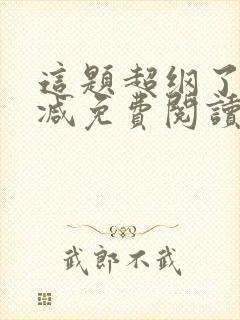 這題超纲了
減免費閱讀
武郎不武